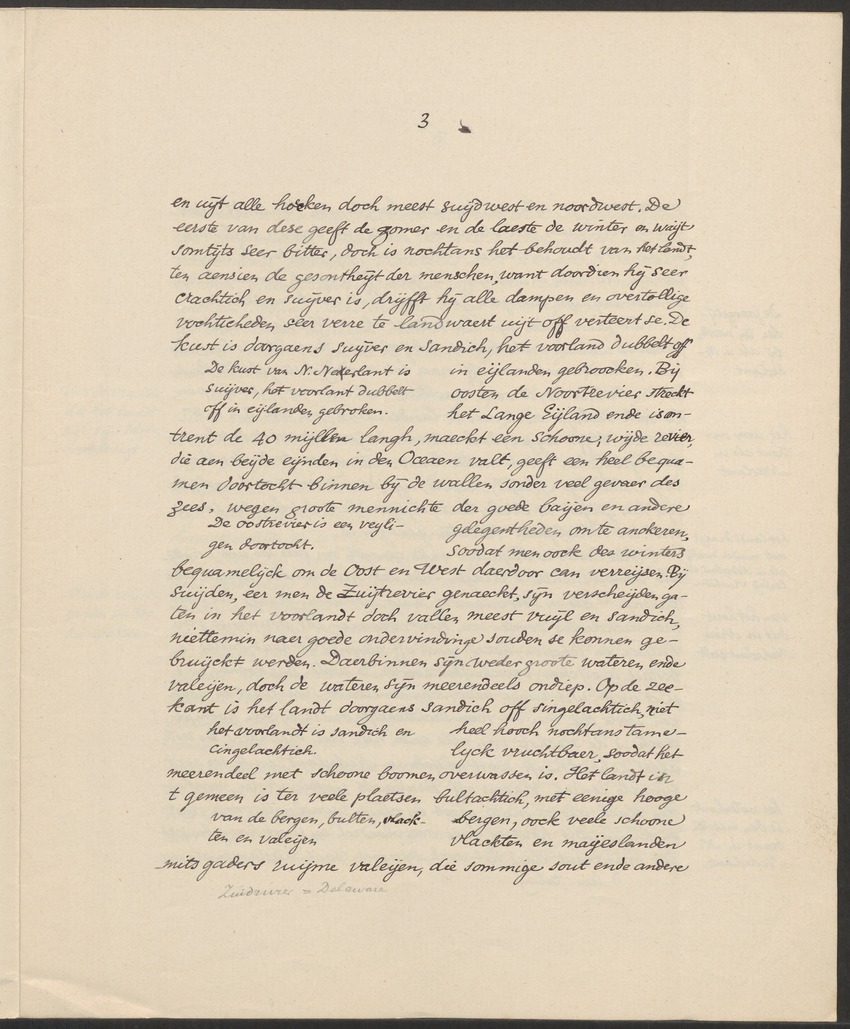 3
en uijt alle hoeken doch meest suijdwest en noordwest. De
eerste van dese geeft de zomer en de laeste de winter en waijt
somtijts seer bitter, doch is nochtans het behoudt van het landt,
ten aensien de gesontheijt der menschen, want doordien hij seer
crachtich en suijver is, drijfft hij alle dampen en overtollige
vochticheden seer verre te landwaert uijt off verteert se. De
kust is dorgaens suijver en sandich, het voorland dubbelt off
De kust van N. Nederlant is
in eijlanden gebroocken. Bij
suijver, het voorlant dubbelt
oosten de Noortrevier streckt
off in eijlanden gebroken.
het Lange Eijland ende is om-
trent de 40 mijllen langh, maeckt een schoone, wijde revier,
die aen beijde eijnden in den Oceaen valt, geeft een heel bequa-
men doortocht binnen bij de wallen sonder veel gevaer des
zees, wegen groote mennichte der goede baijen en andere
De oostrevier is een veyli-
gelegentheden om te anckeren,
gen doortocht.
soodat men oock des winters
bequamelijck om de Oost en West daerdoor can verreijsen. Bij
suijden, eer men de Zuijtrevier genaeckt, sijn verscheijden ga-
ten in het voorlandt doch vallen meest vuijl en sandich,
niettemin naer goede ondervindinge souden se konnen ge-
bruijckt werden. Daerbinnen sijn weder groote wateren ende
valeijen, doch de wateren sijn meerendeels ondiep. Op de zee-
kant is het landt doorgaens sandich off singelachtich, niet
het voorlandt is sandich en
heel hooch nochtans tame-
cingelachtich.
lyck vruchtbaer, soodat het
meerendeel met schoone boomen overwassen is. Het landt in
t gemeen is ter veele plaetsen bultachtich, met eenige hooge
van de bergen, bulten, vlack-
bergen, oock veele schoone
ten en valeijen
vlackten en maijeslanden
mitsgaders ruijme valeijen, die sommige sout ende andere
Zuidrivier = Delaware